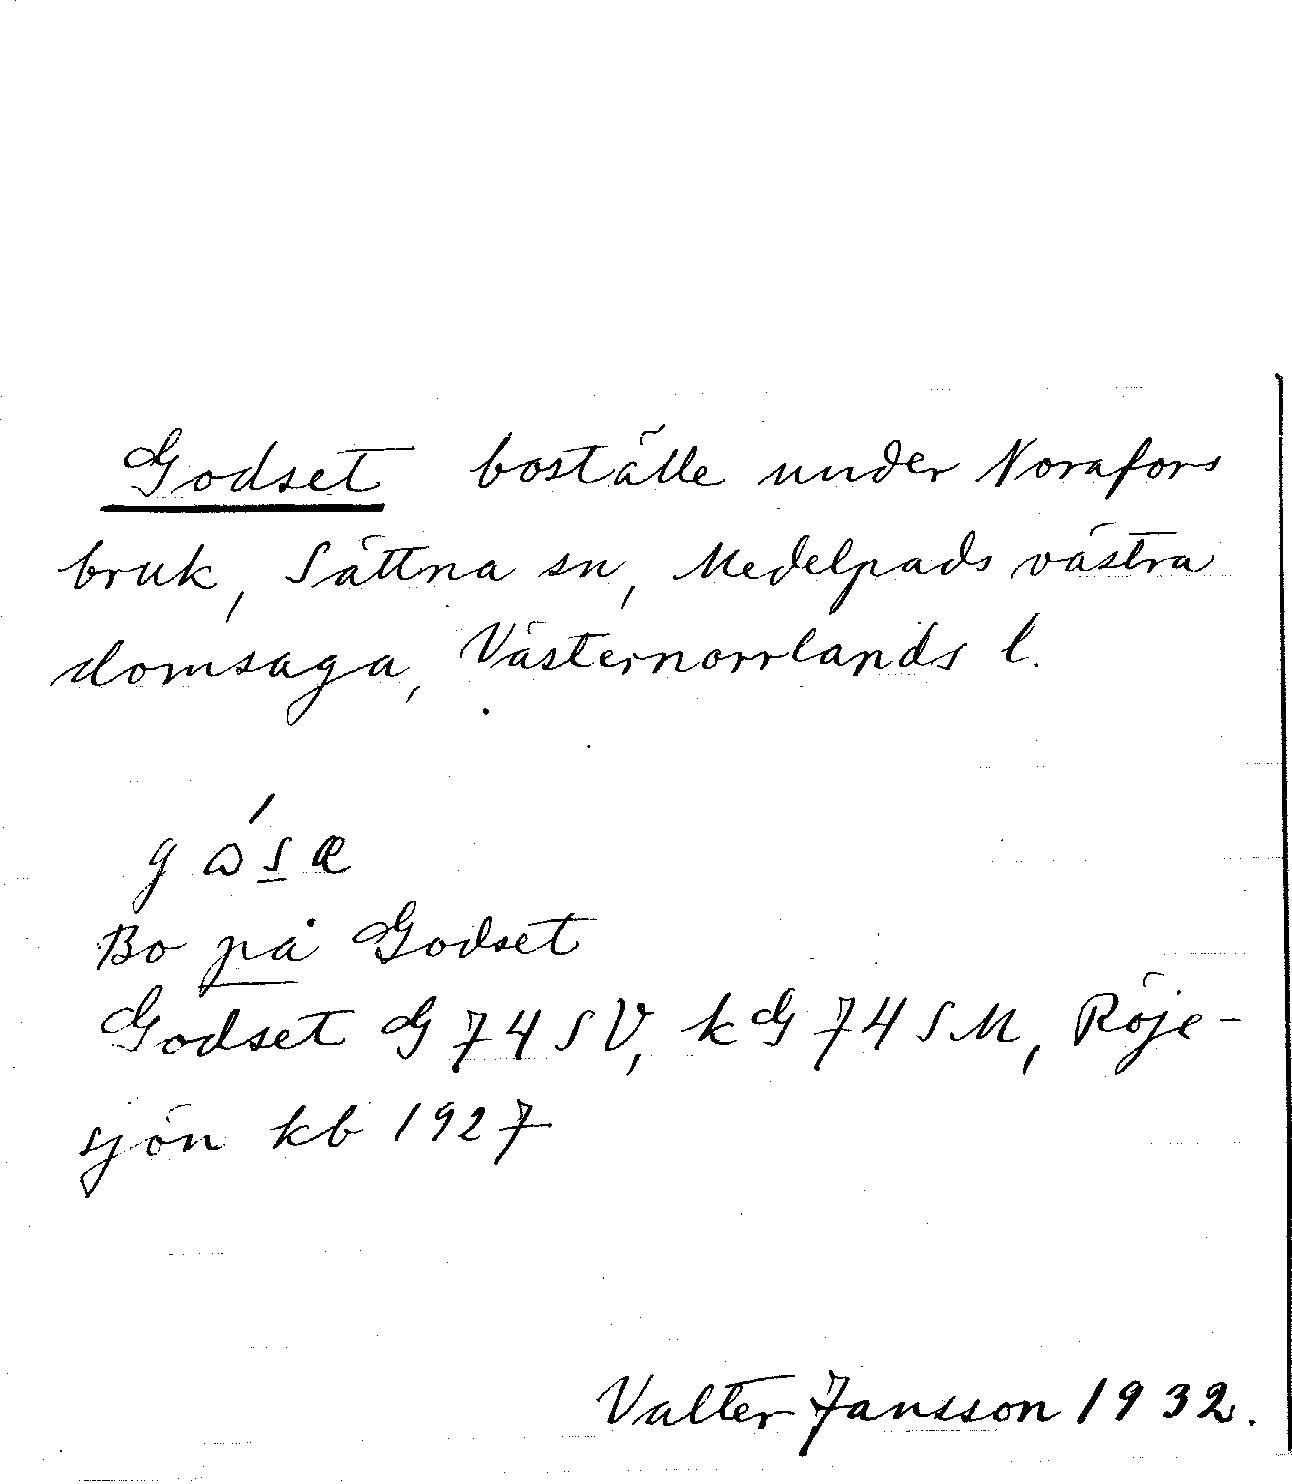 Godset boställe under Norafors
bruk, Sättna sn, Medelpads västra
domsaga, Västernorrlands l.
Bo på Godset
Godset G 74 SV, kG 74 SM, Röje-
sjön kb 1927
Valter Jansson 1932.